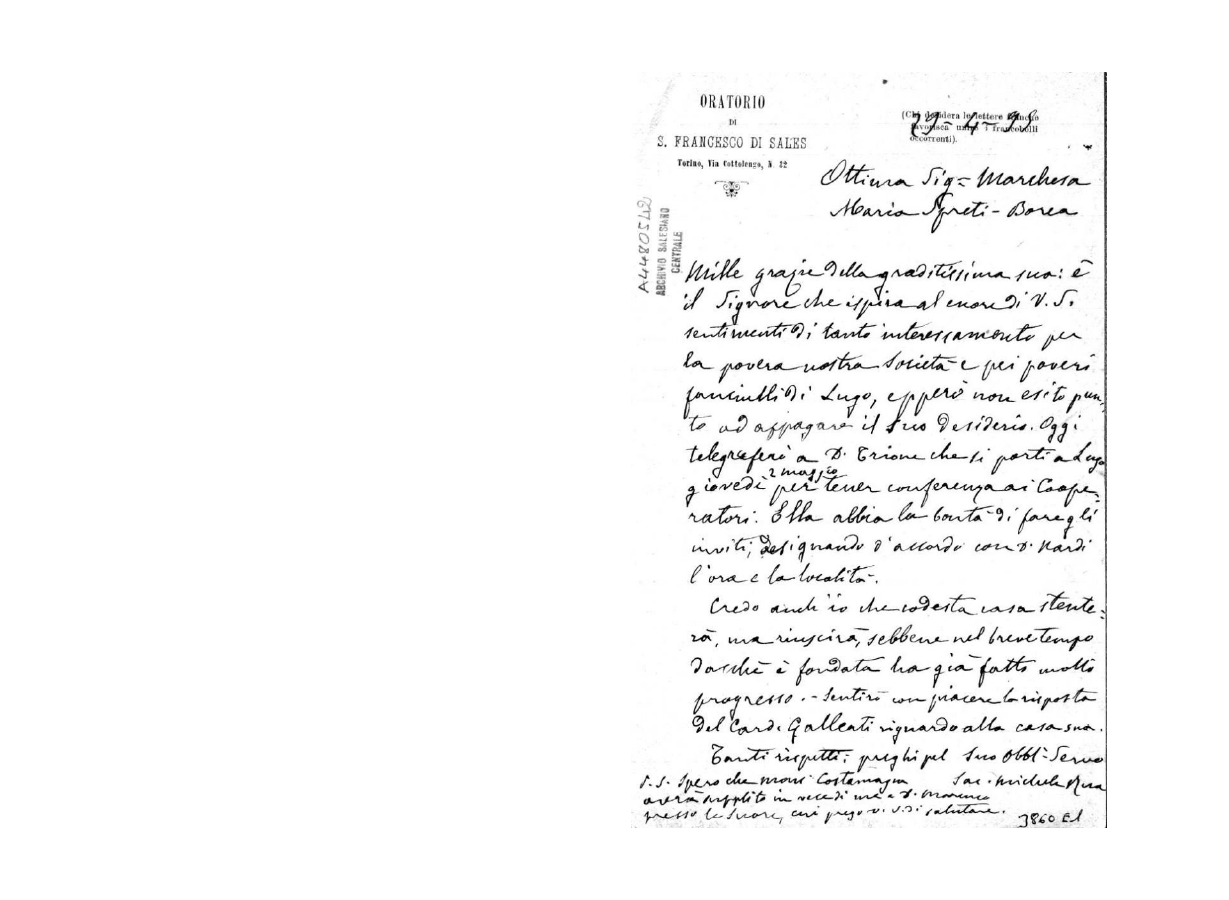 ORATORIO
DI
S. FRANCESCO DI SALES
Torino, Via Cottolengo, N. 32
(Chi desidera le lettere franche
favorisca unire i francobolli
occorrenti).
29-4-95
Ottima Sig.ª Marchesa
Maria Spreti-Borea
A4480542
ARCHIVIO SALESIANO
CENTRALE
Mille grazie della graditissima sua: è
il Signore che ispira al cuore di V. S.
sentimenti di tanto interessamento per
la povera nostra Società e pei poveri
fanciulli di Lugo, epperò non esito pun-
to ad appagare il suo desiderio. Oggi
telegraferò a D. Trione che si porti a Lugo
giovedì 2 maggio per tener conferenza ai Coope-
ratori. Ella abbia la bontà di fare gli
inviti, designando d'accordo con D. Nardi
l'ora e la località.
Credo anch'io che codesta casa stente-
rà, ma riuscirà, sebbene nel breve tempo
dacchè è fondata ha già fatto molto
progresso. - Sentirò con piacere la risposta
del Card. Galleati riguardo alla casa sua.
Tanti rispetti; preghi pel Suo Obbl. Servo
Sac. Michele Rua
P.S. Spero che mons. Costamagna
avrà supplito in vece di me e D. Marenco
presso le Suore, cui prego V. S. di salutare.
3860 E1